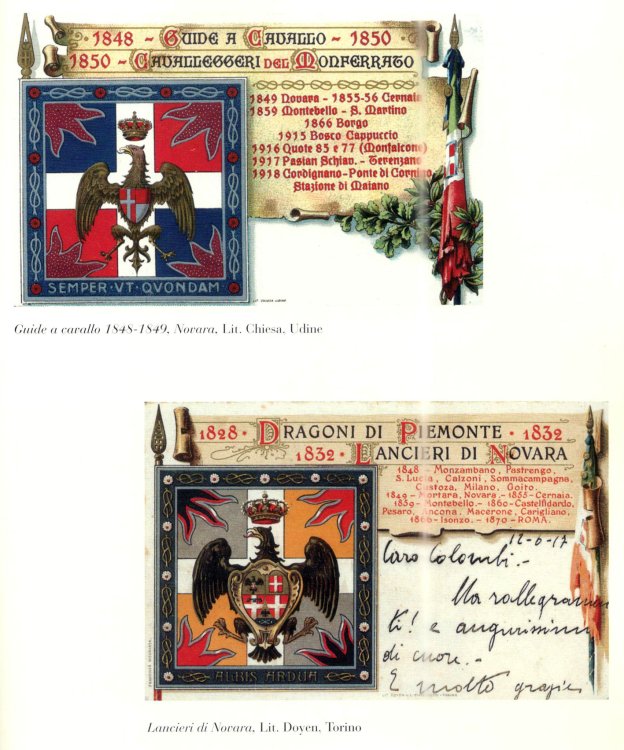 1848 ~ GUIDE A CAVALLO ~ 1850
1850 ~ CAVALLEGGERI DEL MONFERRATO
1849 Novara - 1855-56 Cernaia
1859 Montebello - S. Martino
1866 Borgo
1915 Bosco Cappuccio
1916 Quote 85 e 77 (Monfalcone)
1917 Pasian Schiav. - Terenzano
1918 Cordignano - Ponte di Cornino
Stazione di Maiano
SEMPER · VT · QVONDAM
LIT. CHIESA UDINE
Guide a cavallo 1848-1849, Novara, Lit. Chiesa, Udine
1828 · DRAGONI DI PIEMONTE · 1832
1832 · LANCIERI DI NOVARA
1848 - Monzambano, Pastrengo,
S. Lucia, Calzoni, Sommacampagna,
Custoza, Milano, Goito.
1849 - Mortara, Novara. - 1855 - Cernaia.
1859 - Montebello. - 1860 - Castelfidardo,
Pesaro, Ancona, Macerone, Carigliano,
1866 - Isonzo. - 1870 - ROMA.
12-6-17
Caro Colombi. -
Ma rallegramen
ti! e augurissimi
di cuore. -
E molto grazie
ALBIS ARDUA
Lancieri di Novara, Lit. Doyen, Torino